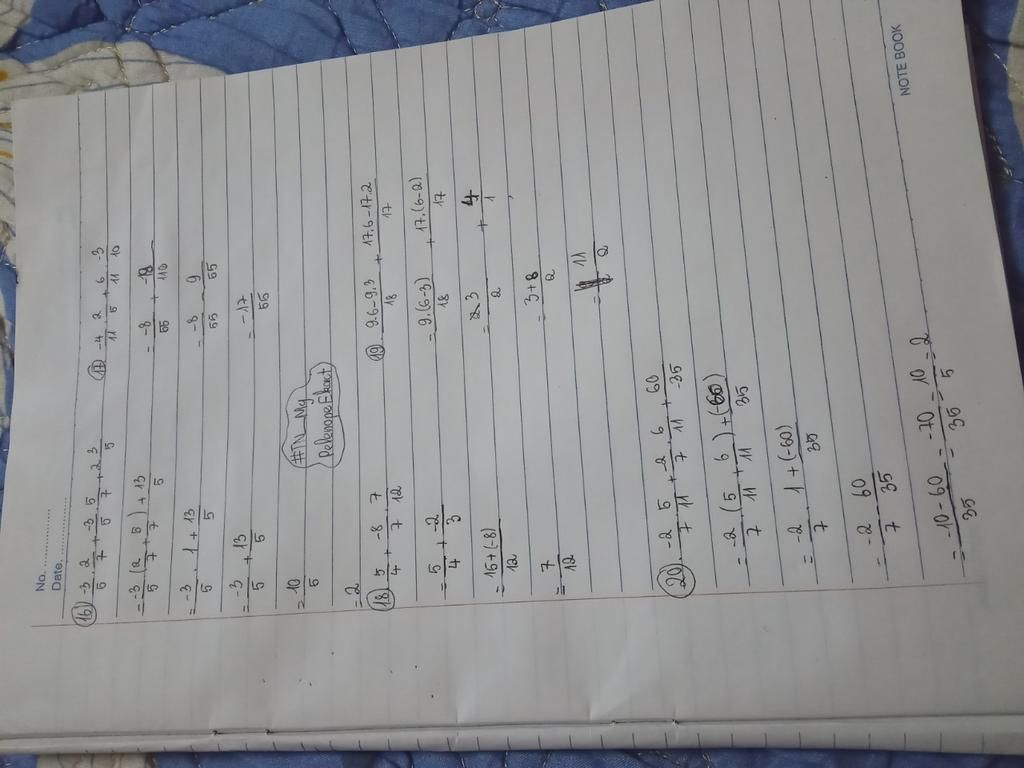 No. ....................
Date. ....................
(16) -3/5 . 2/7 + -3/5 . 5/7 + 2 3/5
= -3/5 . (2/7 + 5/7) + 13/5
= -3/5 . 1 + 13/5
= -3/5 + 13/5
= 10/5
= 2
(17) -4/11 . 2/5 + 6/11 . -3/10
= -8/55 + -18/110
= -8/55 - 9/55
= -17/55
#Ny_My
(18) 5/4 + -8/7 . 7/12
= 5/4 + -2/3
= 15+(-8)/12
= 7/12
(19) 9.6-9.3/18 + 17.6-17.2/17
= 9.(6-3)/18 + 17.(6-2)/17
= 3/2 + 4/1
= 3+8/2
= 11/2
(20) -2/7 . 5/11 + -2/7 . 6/11 + 60/35
= -2/7 . (5/11 + 6/11) + (-60)/35
= -2/7 . 1 + (-60)/35
= -2/7 - 60/35
= -10-60/35 = -70/35 = 10/5 = 2
NOTE BOOK